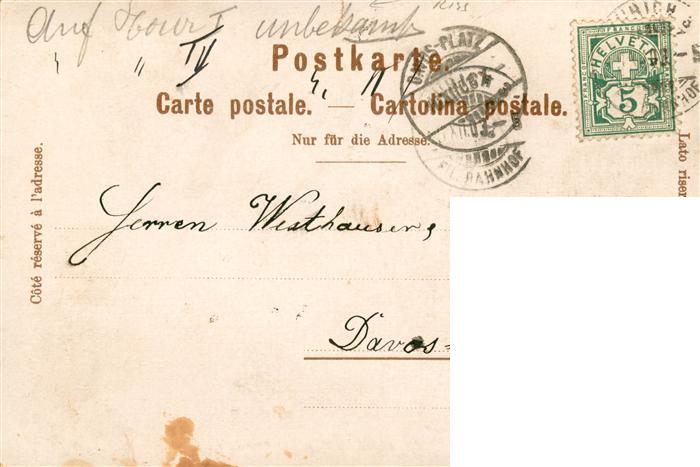 Auf Tour I unbekannt
" " IV " " "
Postkarte.
Carte postale. — Cartolina postale.
Nur für die Adresse.
Côté réservé à l'adresse.
Lato riser
HELVETIA
FRANCO
5
DAVOS-PLATZ
BAHNHOF
Herren Westhauser,
Davos-